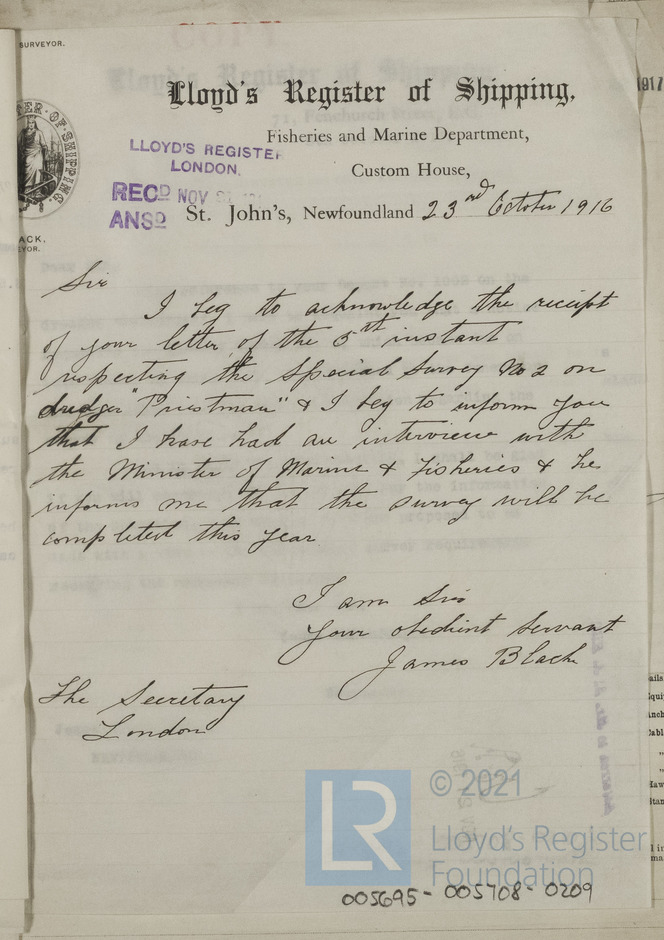 SURVEYOR.
COPY
1917
Lloyd's Register of Shipping,
Fisheries and Marine Department,
LLOYD'S REGISTER
LONDON.
Custom House,
RECD NOV
ANSD
St. John's, Newfoundland 23rd October 1916
ACK,
Sir
I beg to acknowledge the receipt
of your letter of the 5th instant
respecting the Special Survey No 2 on
dredger "Priestman" & I beg to inform you
that I have had an interview with
the Minister of Marine & Fisheries & he
informs me that the survey will be
completed this year
I am Sir
Your obedient Servant
James Black
The Secretary
London
LR
© 2021
Lloyd's Register
Foundation
005695-005708-0209